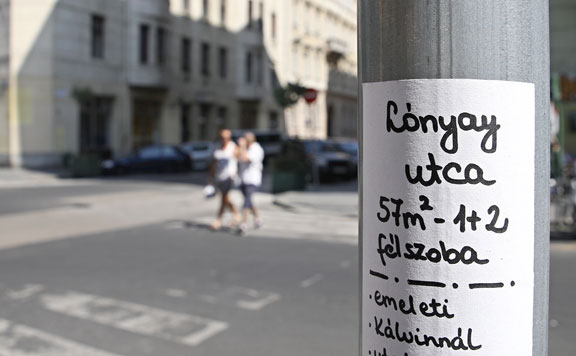 Lónyay
utca
57m² - 1+2
félszoba
— · — · — ·
· emeleti
· Kálvinnál